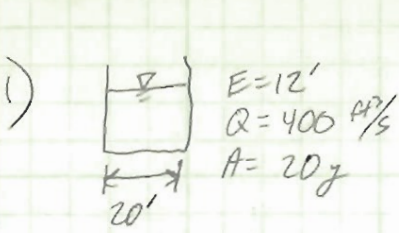 1)
E=12'
Q=400 ft³/s
A=20y
20'